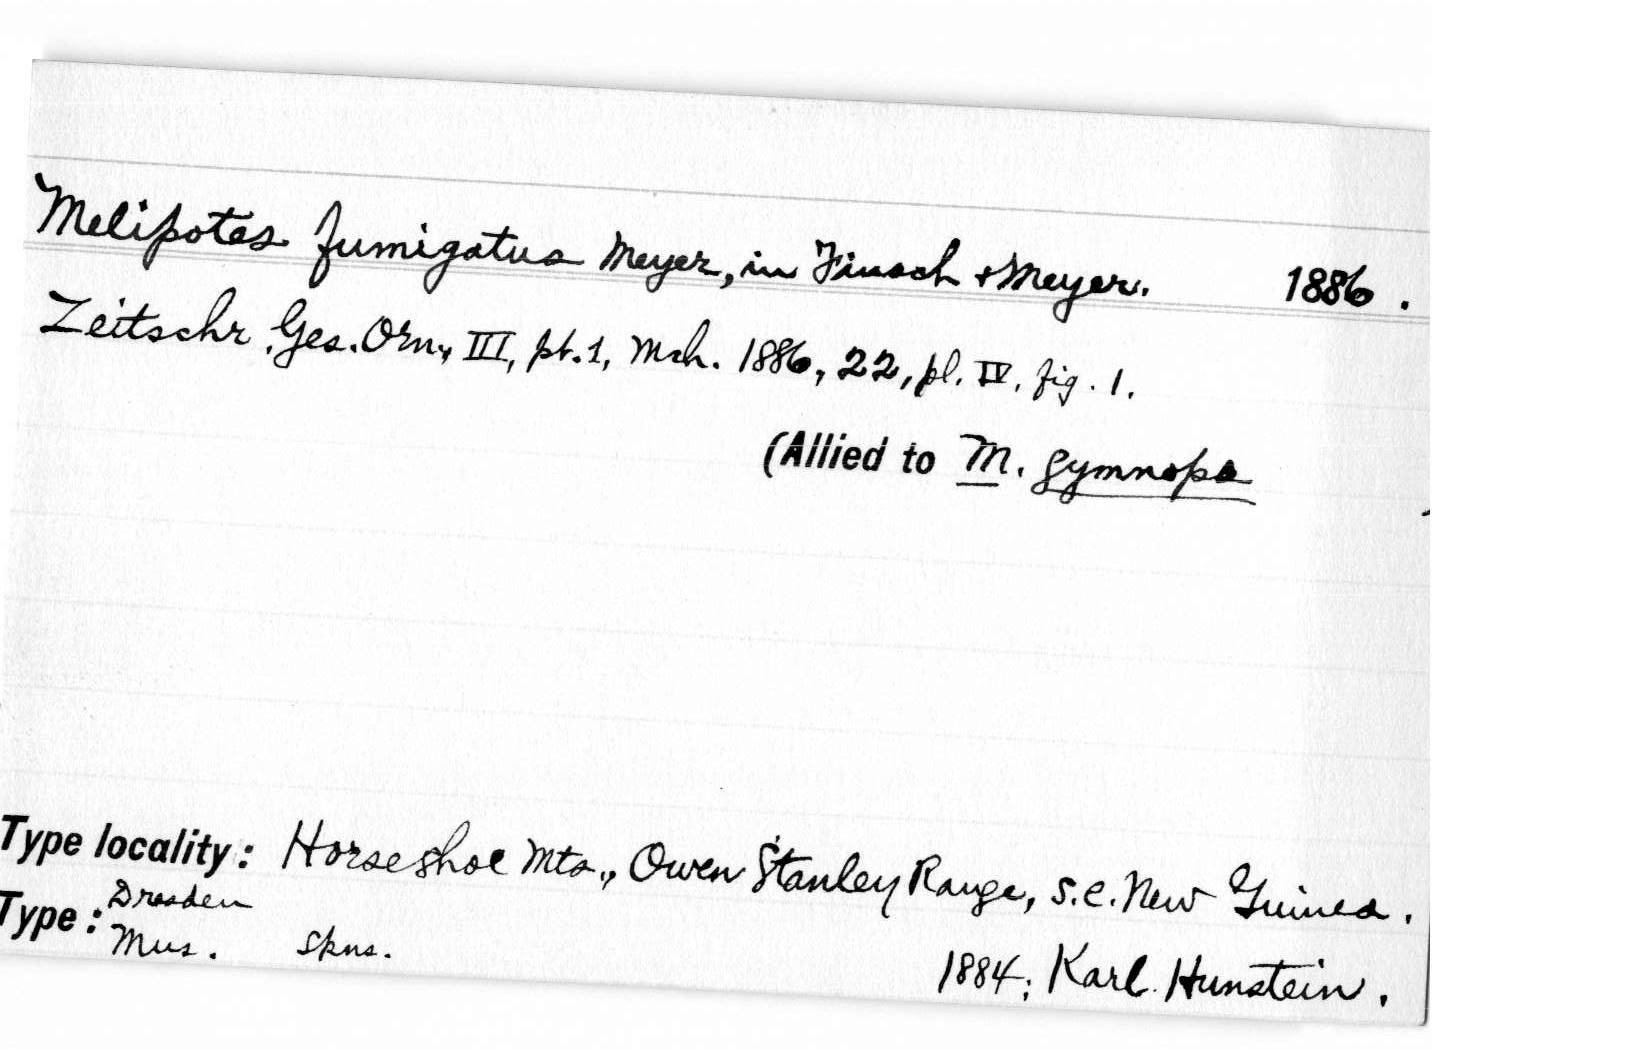 Melipotes fumigatus Meyer, in Finsch + Meyer. 1886.
Zeitschr. Ges. Orn., III, pt. 1, Mch. 1886, 22, pl. IV, fig. 1.
(Allied to M. gymnops
Type locality: Horseshoe Mts., Owen Stanley Range, s.e. New Guinea.
Type: Dresden
Mus. Skns. 1884; Karl Hunstein.